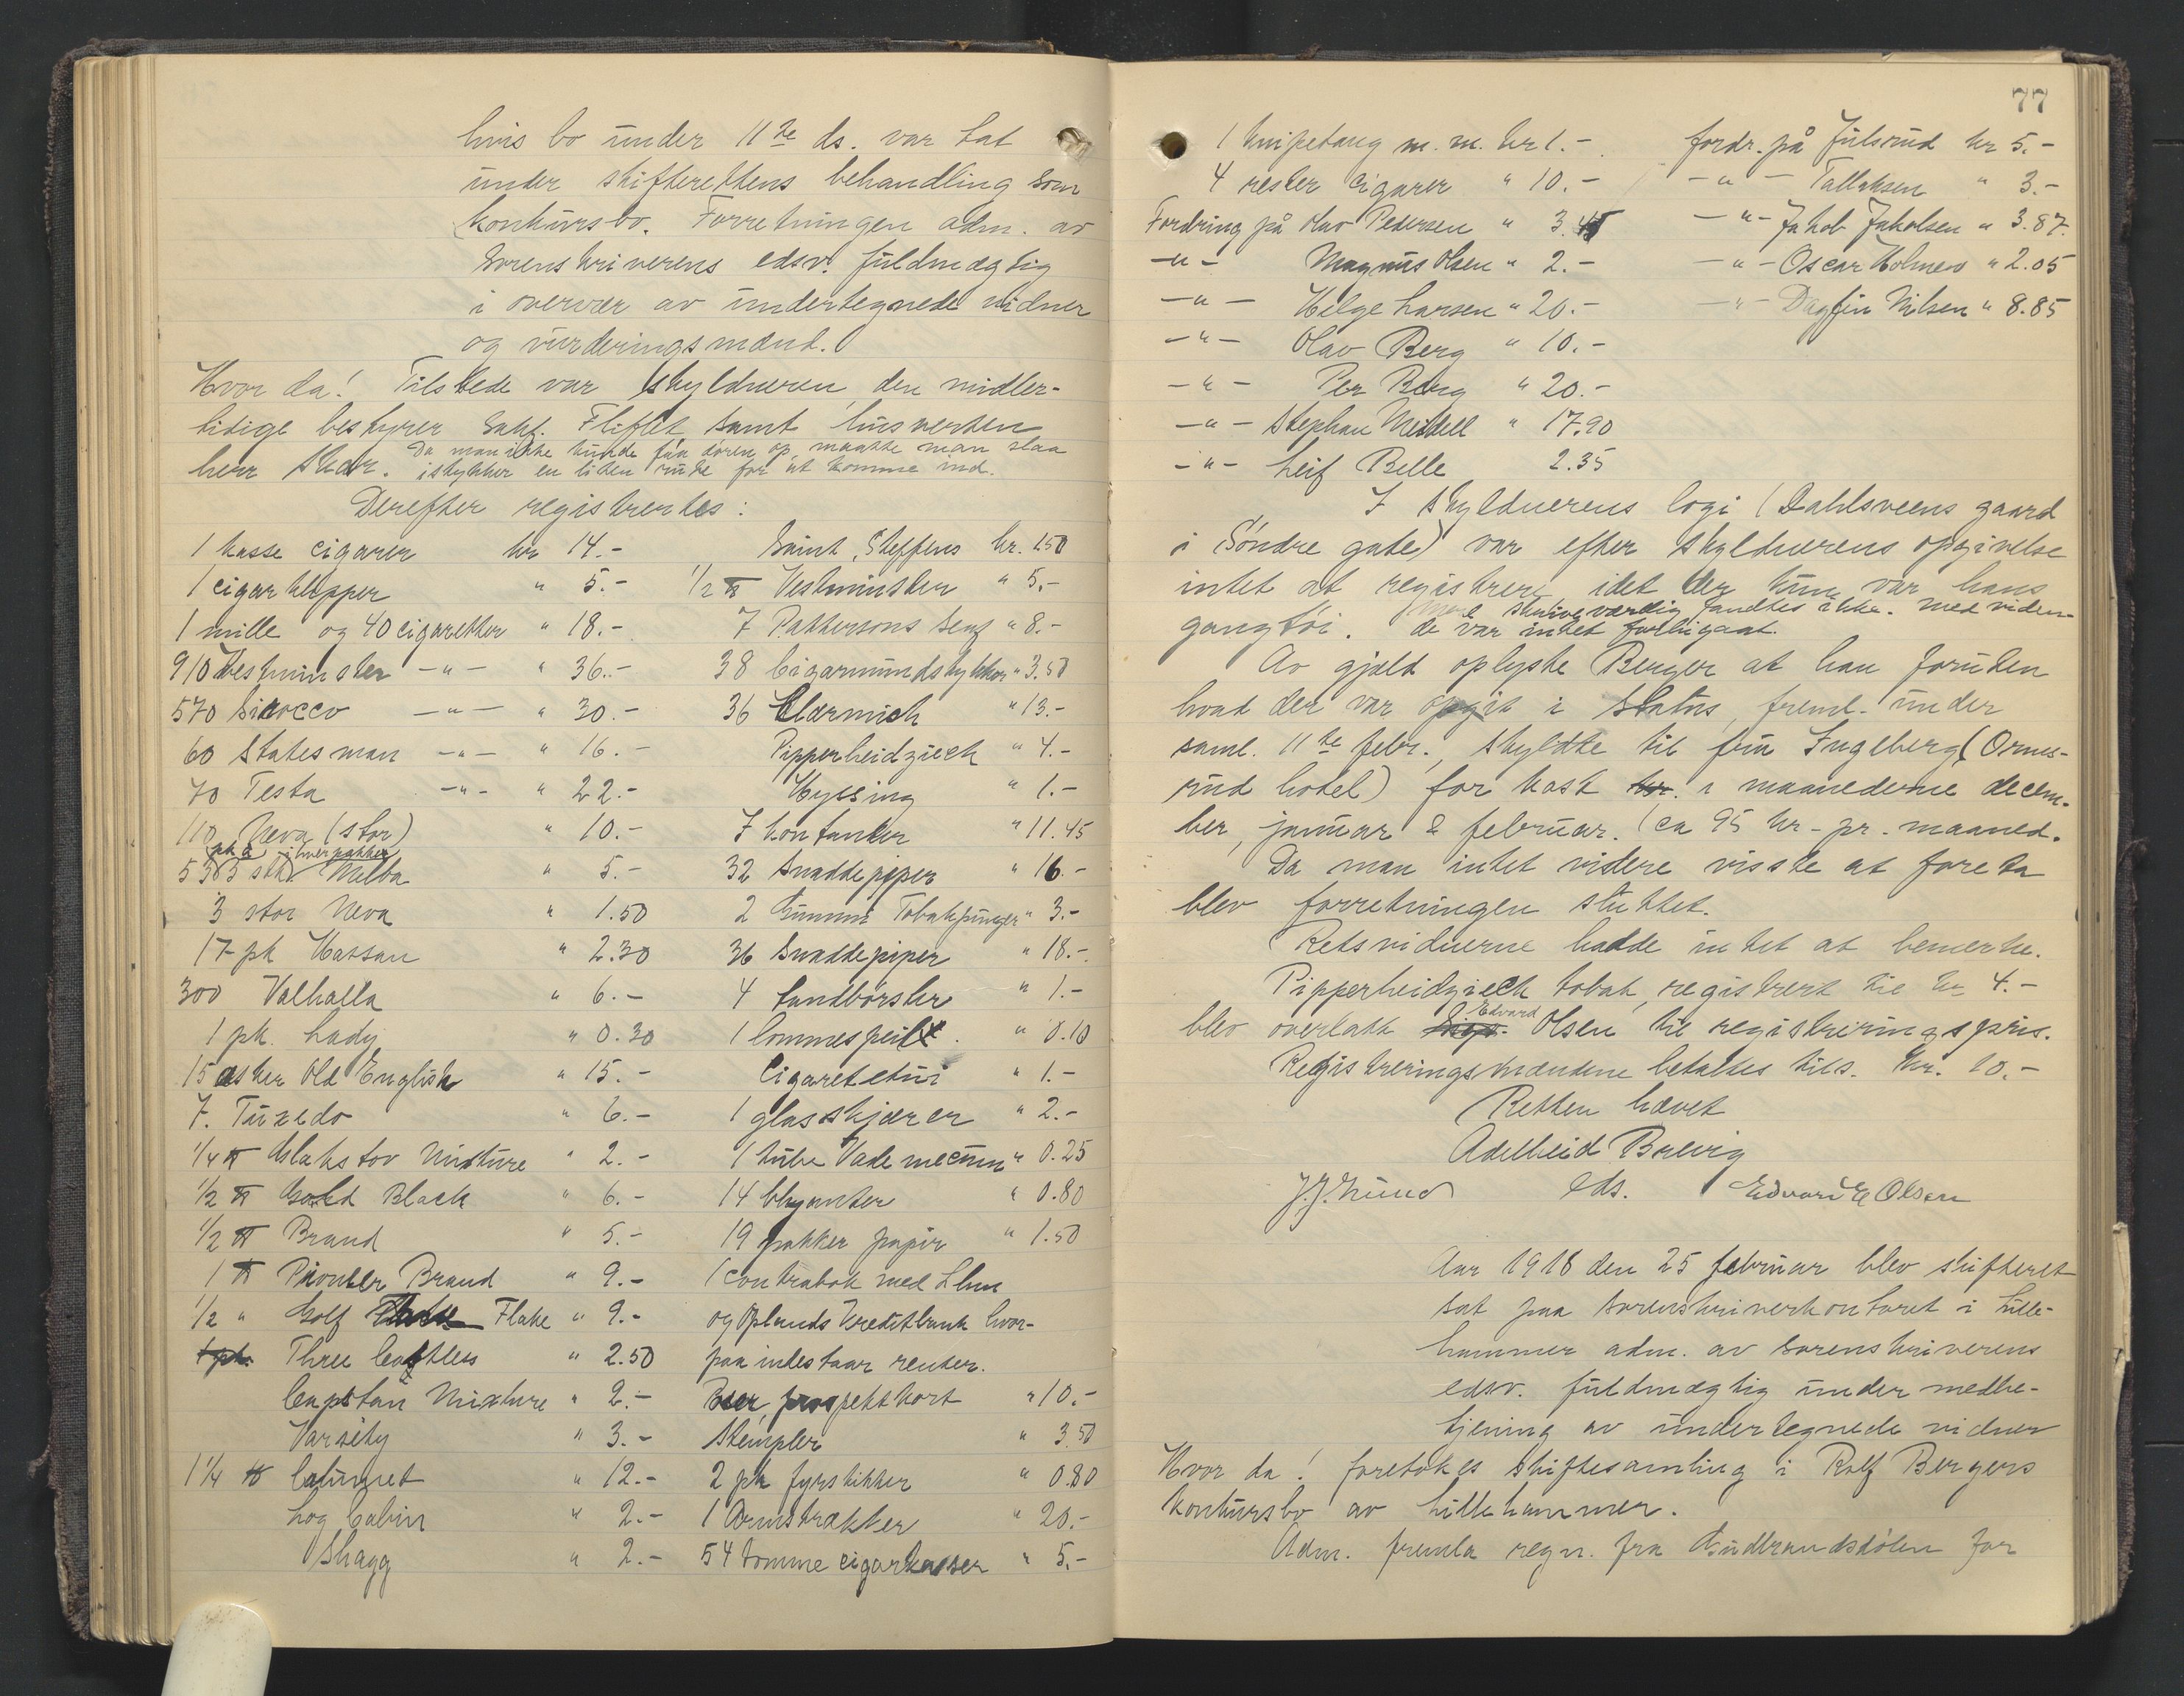 hvis bo under 11te ds. var tat
under skifterettens behandling som
konkursbo. Forretningen adm. av
Sorenskriverens edsv. fuldmægtig
i overvær av undertegnede vidner
og vurderingsmænd.
Hvor da! Tilstede var skyldneren, den midler-
tidige bestyrer Sakf. Fliflet samt husverten
Da man ikke kunde faa døren op, maatte man slaa
herr Skar. istykker en liten rute for at komme ind.
Derefter registrertes:
1 kasse cigarer kr 14.-
1 cigarklipper " 5.-
1 mille og 40 cigaretter " 18.-
910 Vestminster -"- " 36.-
570 Sirocco -"- " 30.-
60 Statesman -"- " 16.-
70 Testa -"- " 22.-
110 Neva (stor) " 10.-
pk à i hver pakke
53 5 stk. Melba " 5.-
3 stor Neva " 1.50
17 pk Hassan " 2.30
300 Valhalla " 6.-
1 pk. Lady " 0.30
15 æsker Old English " 15.-
7. Tuxedo " 6.-
1/4 ℔ Mixture " 2.-
1/2 ℔ Gold Black " 6.-
1/2 ℔ Brand " 5.-
1 ℔ Pioneer Brand " 9.-
1/2 " Golf Flake " 9.-
1 pk. Three Castles " 2.50
Capstan Mixture " 2.-
Varsity " 3.-
1 1/4 ℔ Calumet " 12.-
Log Cabin " 2.-
Shagg " 2.-
Saint, Steffens kr. 1.50
1/2 ℔ Vestminster " 5.-
7 Pattersons " 8.-
38 Cigarmundstykker " 3.50
36 " 13.-
Pipperheidzieck " 4.-
Hyssing " 1.-
I kontanter " 11.45
32 Snaddepiper " 16.-
2 Gummi Tobakpunger " 3.-
36 Snaddepiper " 18.-
4 tandbørster " 1.-
1 lommespeil. " 0.10
Cigaretetui " 1.-
1 glasskjærer " 2.-
1 tube Vademecum " 0.25
14 blyanter " 0.80
19 pakker papir " 1.50
1 contrabok med Lhmr
og Oplands Kreditbank hvor-
paa indestaar renter.
prospektkort " 10.-
Stempler " 3.50
2 pk fyrstikker " 0.80
1 Ovnstrækker " 20.-
54 tomme cigarkasser " 5.-
77
1 knipetang m.m. kr 1.-
4 rester cigarer " 10.-
Fordring på Olav Pedersen " 3.45
-"- Magnus Olsen " 2.-
-"- Helge Larsen " 20.-
-"- Olav Berg " 10.-
-"- Per Berg " 20.-
-"- Stephan Meidell " 17.90
-"- Leif Belle 2.35
fordr. på Julsrud kr 5.-
-"- Tallaksen " 3.-
-"- Jakob Jakobsen " 3.87.
-"- Oscar Holmen " 2.05
-"- Dagfin Nilsen " 8.85
I skyldnerens logi (Dahlsveens gaard
i Søndre gate) var efter skyldnerens opgivelse
intet at registrere idet der kun var hans
mere skriveværdig fandtes ikke. Med viden-
gangtøi. de var intet forbigaat.
Av gjæld oplyste Berger at han foruten
hvad der var opgit i Status, freml. under
saml. 11te febr., skyldte til fru Ingeberg (Ormse-
rud hotel) for kost kr. i maanederne decem-
ber, januar & februar. (ca 95 kr. pr. maaned.
Da man intet videre visste at foreta
blev forretningen sluttet.
Retsvidnerne hadde intet at bemerke.
Pipperheidzieck tobak, registrert til kr 4.-
Edvard
blev overlatt Olsen til registreringspris.
Registreringsmændene betaltes tils. kr. 10.-
Retten hævet
Adelheid Brevig
J.J. Lund eds. Edvard E Olsen
Aar 1918 den 25 februar blev skifteret
sat paa sorenskriverkontoret i Lille-
hammer adm. av sorenskriverens
edsv. fuldmægtig under medbe-
tjening av undertegnede vidner
Hvor da! foretokes skiftesamling i Rolf Bergers
konkursbo av Lillehammer.
Adm. fremla regn. fra Gudbrandsdølen for